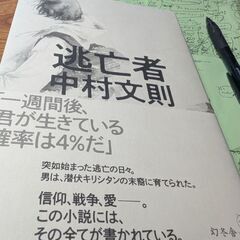 逃亡者
中村文則
「一週間後、
君が生きている
確率は4%だ」
突如始まった逃亡の日々。
男は、潜伏キリシタンの末裔に育てられた。
信仰、戦争、愛――。
この小説には、
その全てが書かれている。
幻冬舎